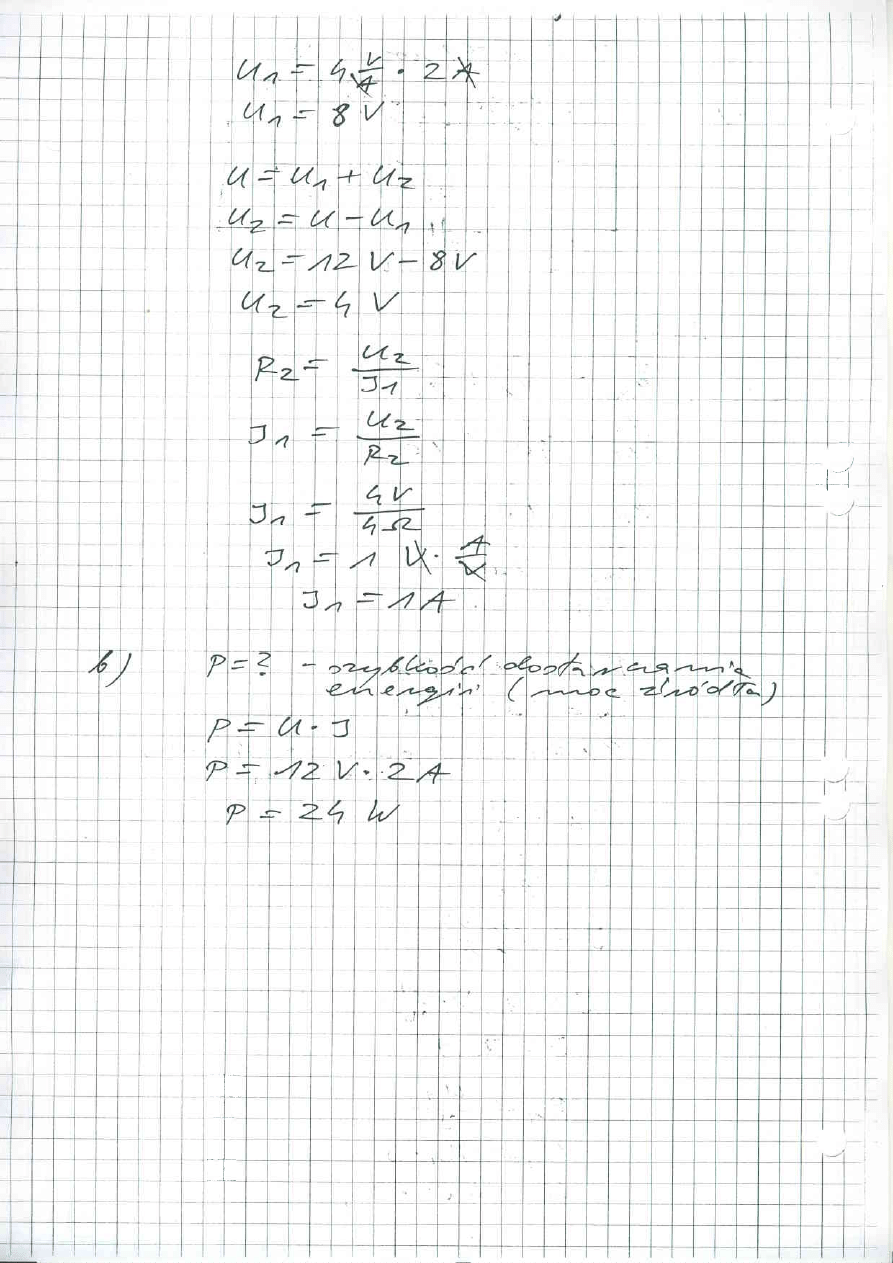 U₁ = 4 V/A · 2 A
U₁ = 8 V
U = U₁ + U₂
U₂ = U − U₁
U₂ = 12 V − 8 V
U₂ = 4 V
R₂ = U₂/I₁
I₁ = U₂/R₂
I₁ = 4V/4Ω
I₁ = 1 V · A/V
I₁ = 1 A
b) P = ? - szybkość dostarczania
energii (moc źródła)
P = U · I
P = 12 V · 2 A
P = 24 W